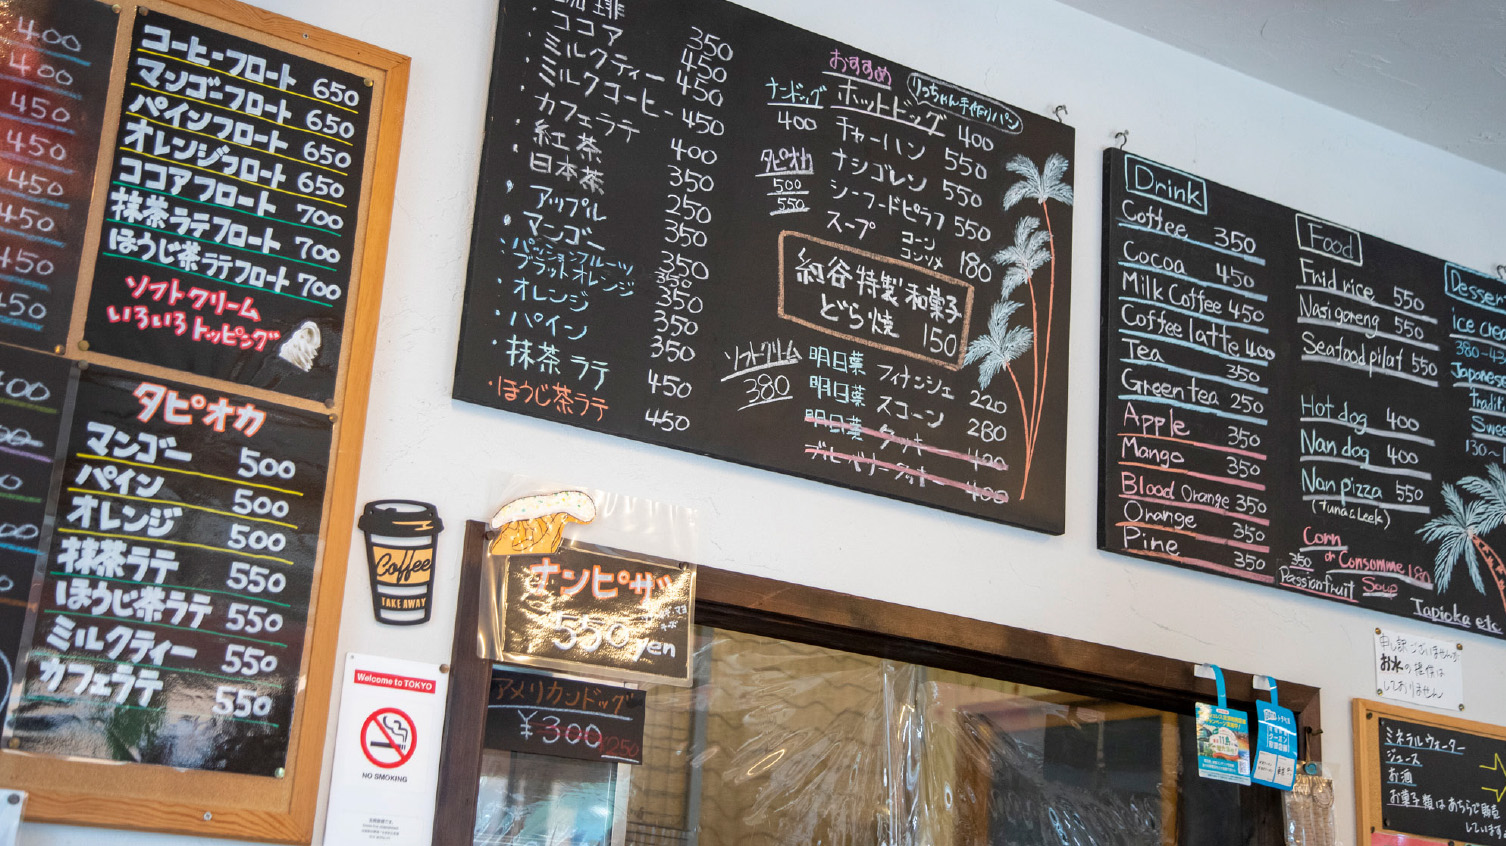 400
400
450
450
450
450
450
450
コーヒーフロート 650
マンゴーフロート 650
パインフロート 650
オレンジフロート 650
ココアフロート 700
抹茶ラテフロート 700
ほうじ茶ラテフロート 700
ソフトクリーム
いろいろトッピング
タピオカ
マンゴー 500
パイン 500
オレンジ 500
抹茶ラテ 550
ほうじ茶ラテ 550
ミルクティー 550
カフェラテ 550
珈琲 350
・ココア 450
・ミルクティー 450
・ミルクコーヒー 450
・カフェラテ 400
・紅茶 350
・日本茶 250
・アップル 350
・マンゴー 350
・パッションフルーツ 350
・ブラッドオレンジ 350
・オレンジ 350
・パイン 350
・抹茶ラテ 450
・ほうじ茶ラテ 450
おすすめ
りっちゃん手作りパン
ナンドッグ 400
ホットドッグ 400
チャーハン 550
ナシゴレン 550
シーフードピラフ 550
スープ コーン コンソメ 180
タピオカ
500
550
紐谷特製和菓子
どら焼 150
ソフトクリーム
380
明日葉 フィナンシェ 220
明日葉 スコーン 280
明日葉 クッキー 400
ブルーベリークッキー 400
Drink
Coffee 350
Cocoa 450
Milk Coffee 450
Coffee latte 400
Tea 350
Green tea 250
Apple 350
Mango 350
Blood Orange 350
Orange 350
Pine 350
Food
Frid rice 550
Nasi goreng 550
Seafood pilaf 550
Hot dog 400
Nan dog 400
Nan pizza 550
(Tuna & Leek)
Corn
or Consomme 180
Soup
350
Passionfruit
Dessert
ice cre
380~4
Japanese
traditi
Swe
130~1
Tapioka etc.
Coffee
TAKE AWAY
ナンピザ
550 yen
アメリカンドッグ
¥300 250
Welcome to TOKYO
NO SMOKING
申し訳ございませんが
お水の提供は
しておりません
ミネラルウォーター
ジュース
お酒
お菓子類はあちらで販売
しています